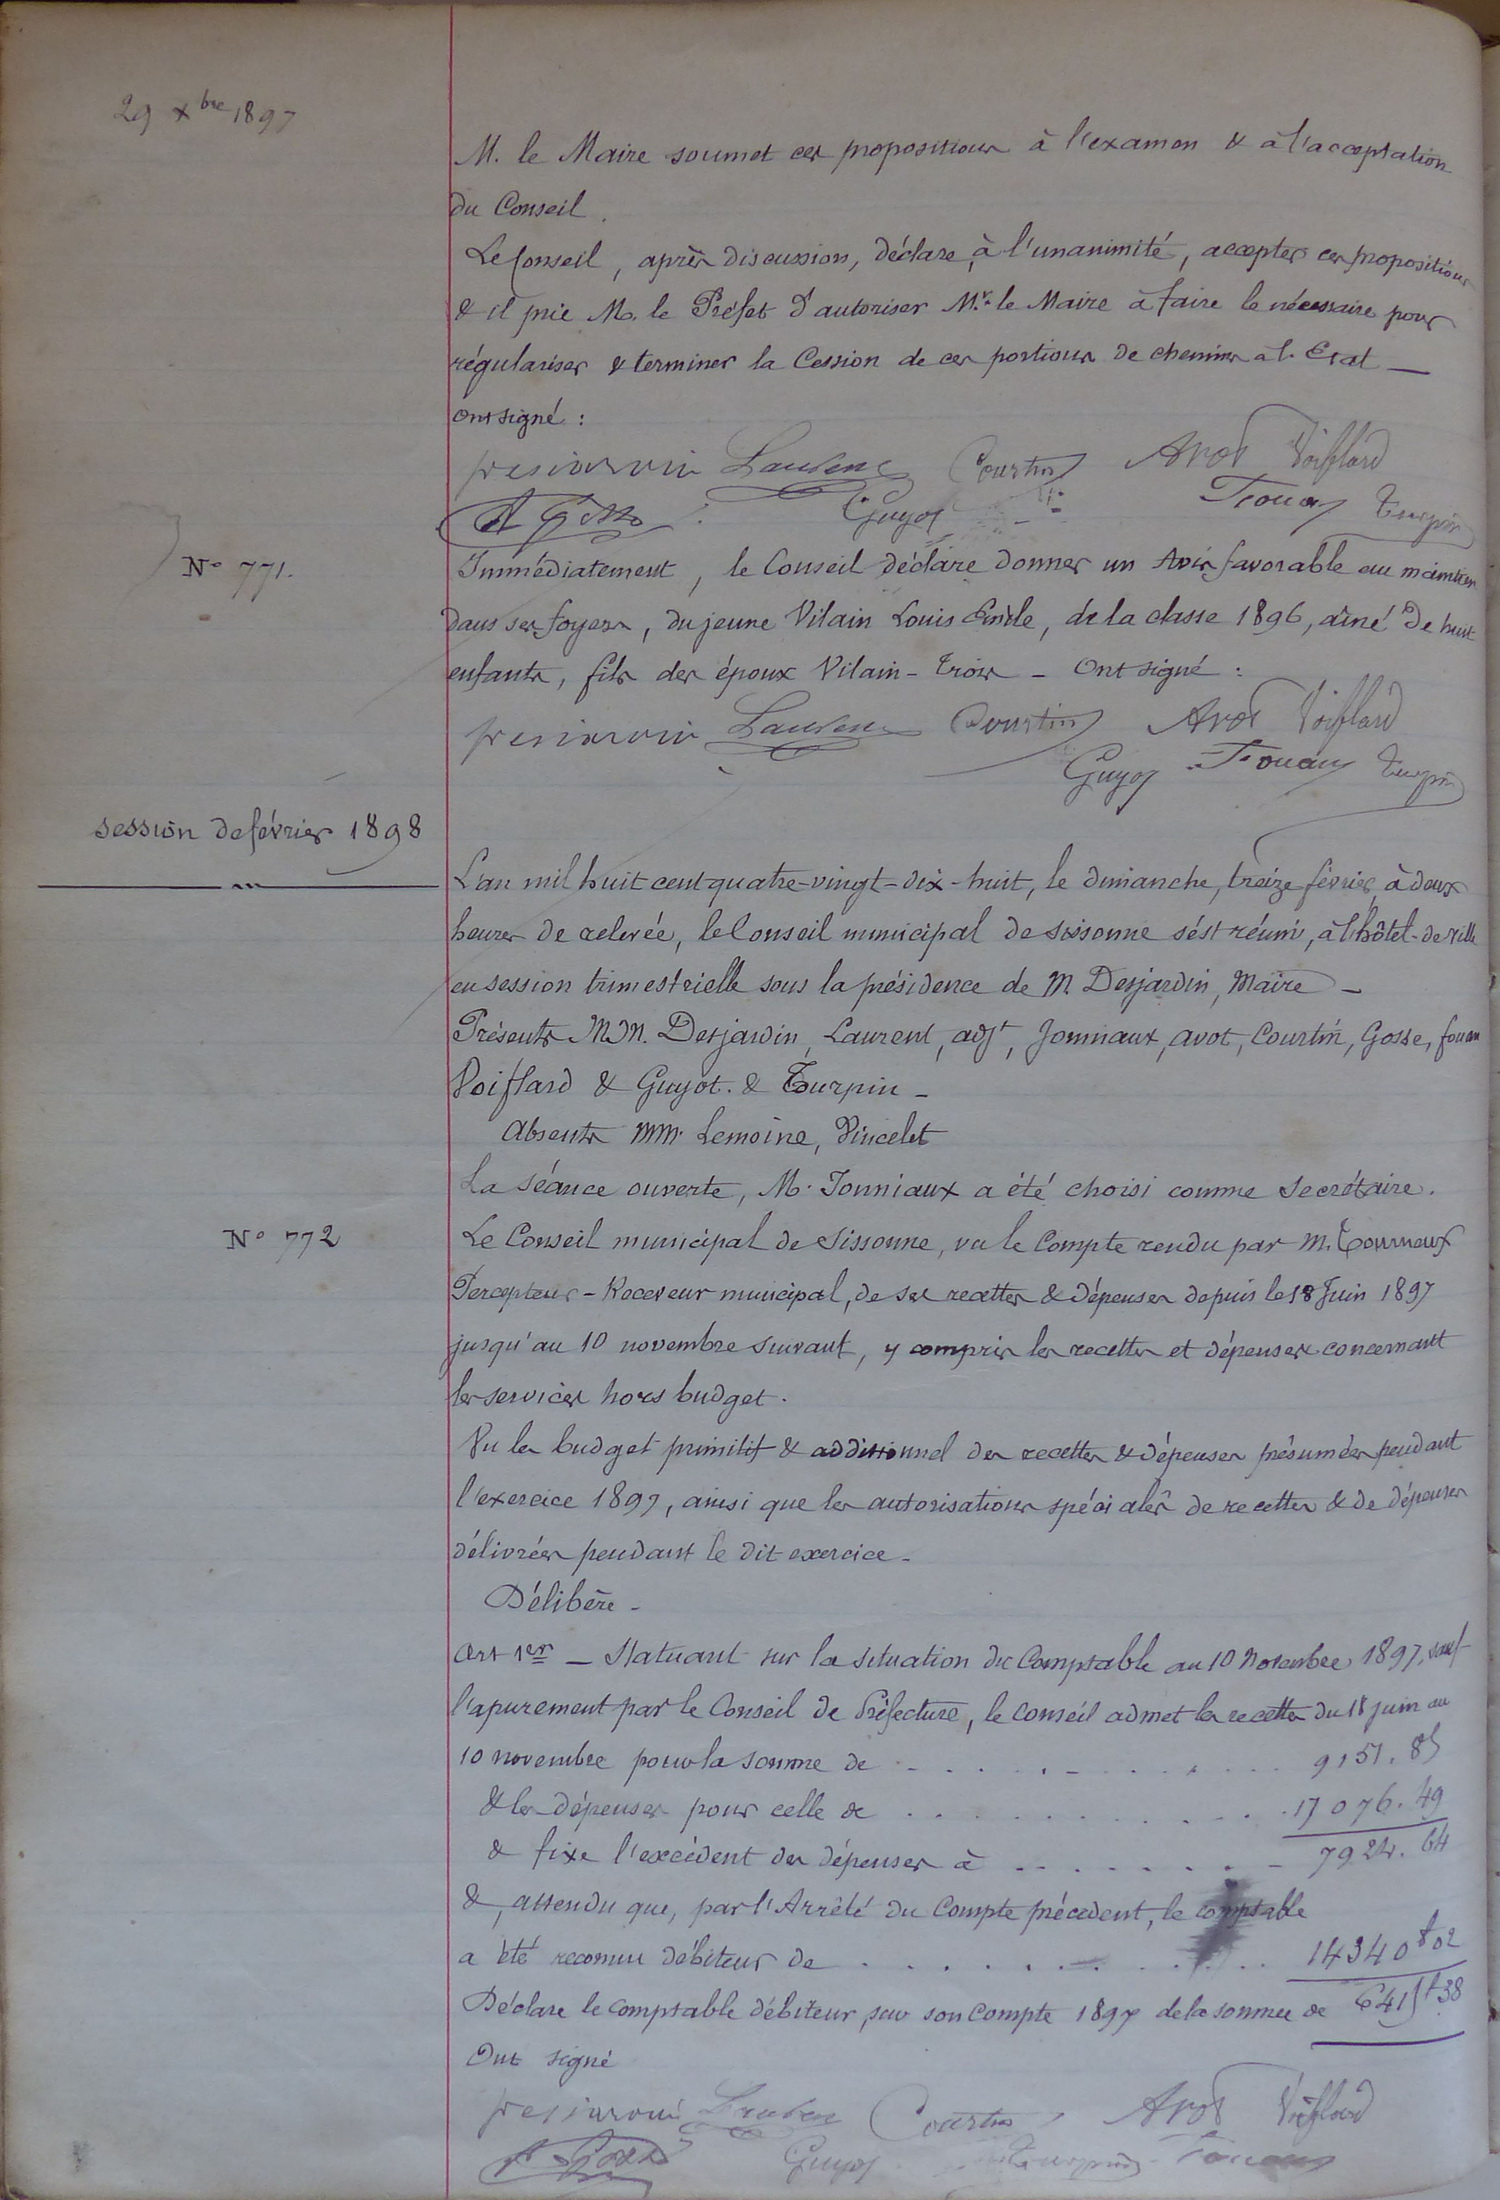 29 Xbre 1897
M. le Maire soumet ces propositions à l'examen & à l'acceptation
du Conseil.
Le Conseil, après discussion, déclare, à l'unanimité, accepter ces propositions
& il prie M. le Préfet d'autoriser Mr. le Maire à faire le nécessaire pour
régulariser & terminer la Cession de ces portions de chemins à l'Etat —
Ont signé :
Desjardin Laurent Courtin Avot Voiflard
A Gosse Guyot Fouan Turpin
No 771.
Immédiatement, le Conseil déclare donner un Avis favorable au maintien
dans ses foyers, du jeune Vilain Louis Emile, de la classe 1896, aîné de huit
enfants, fils des époux Vilain-Trois — Ont signé :
Desjardin Laurent Courtin Avot Voiflard
Guyot Fouan Turpin
Session de février 1898
L'an mil huit cent quatre-vingt-dix-huit, le dimanche, treize février, à deux
heures de relevée, le Conseil municipal de Sissonne s'est réuni, à l'hôtel-de-ville
en session trimestrielle sous la présidence de M. Desjardin, Maire —
Présents MM. Desjardin, Laurent, adjt, Jonniaux, Avot, Courtin, Gosse, fouan
Voiflard & Guyot. & Turpin —
Absents MM. Lemoine, Vincelet
La Séance ouverte, M. Jonniaux a été choisi comme Secrétaire.
No 772
Le Conseil municipal de Sissonne, vu le Compte rendu par M. Tourneux
Percepteur-Receveur municipal, de ses recettes & dépenses depuis le 18 Juin 1897
jusqu'au 10 novembre suivant, y compris les recettes et dépenses concernant
les services hors budget.
Vu les budget primitif & additionnel des recettes & dépenses présumées pendant
l'exercice 1897, ainsi que les autorisations spéciales de recettes & de dépenses
délivrées pendant le dit exercice —
Délibère —
Art 1er — Statuant sur la situation du Comptable au 10 Novembre 1897, sauf
l'apurement par le Conseil de Préfecture, le Conseil admet les recettes du 18 juin au
10 novembre pour la somme de . . . . . . . . . 9151.85
& les dépenses pour celle de . . . . . . . . . 17076.49
& fixe l'excédent des dépenses à . . . . . . . 7924.64
&, attendu que, par l'Arrêté du Compte précédent, le comptable
a été reconnu débiteur de . . . . . . . . . 14340f02
Déclare le comptable débiteur, sur son Compte 1897 de la somme de 6415f38
Ont signé
Desjardin Laurent Courtin Avot Voiflard
A Gosse Guyot Turpin Fouan